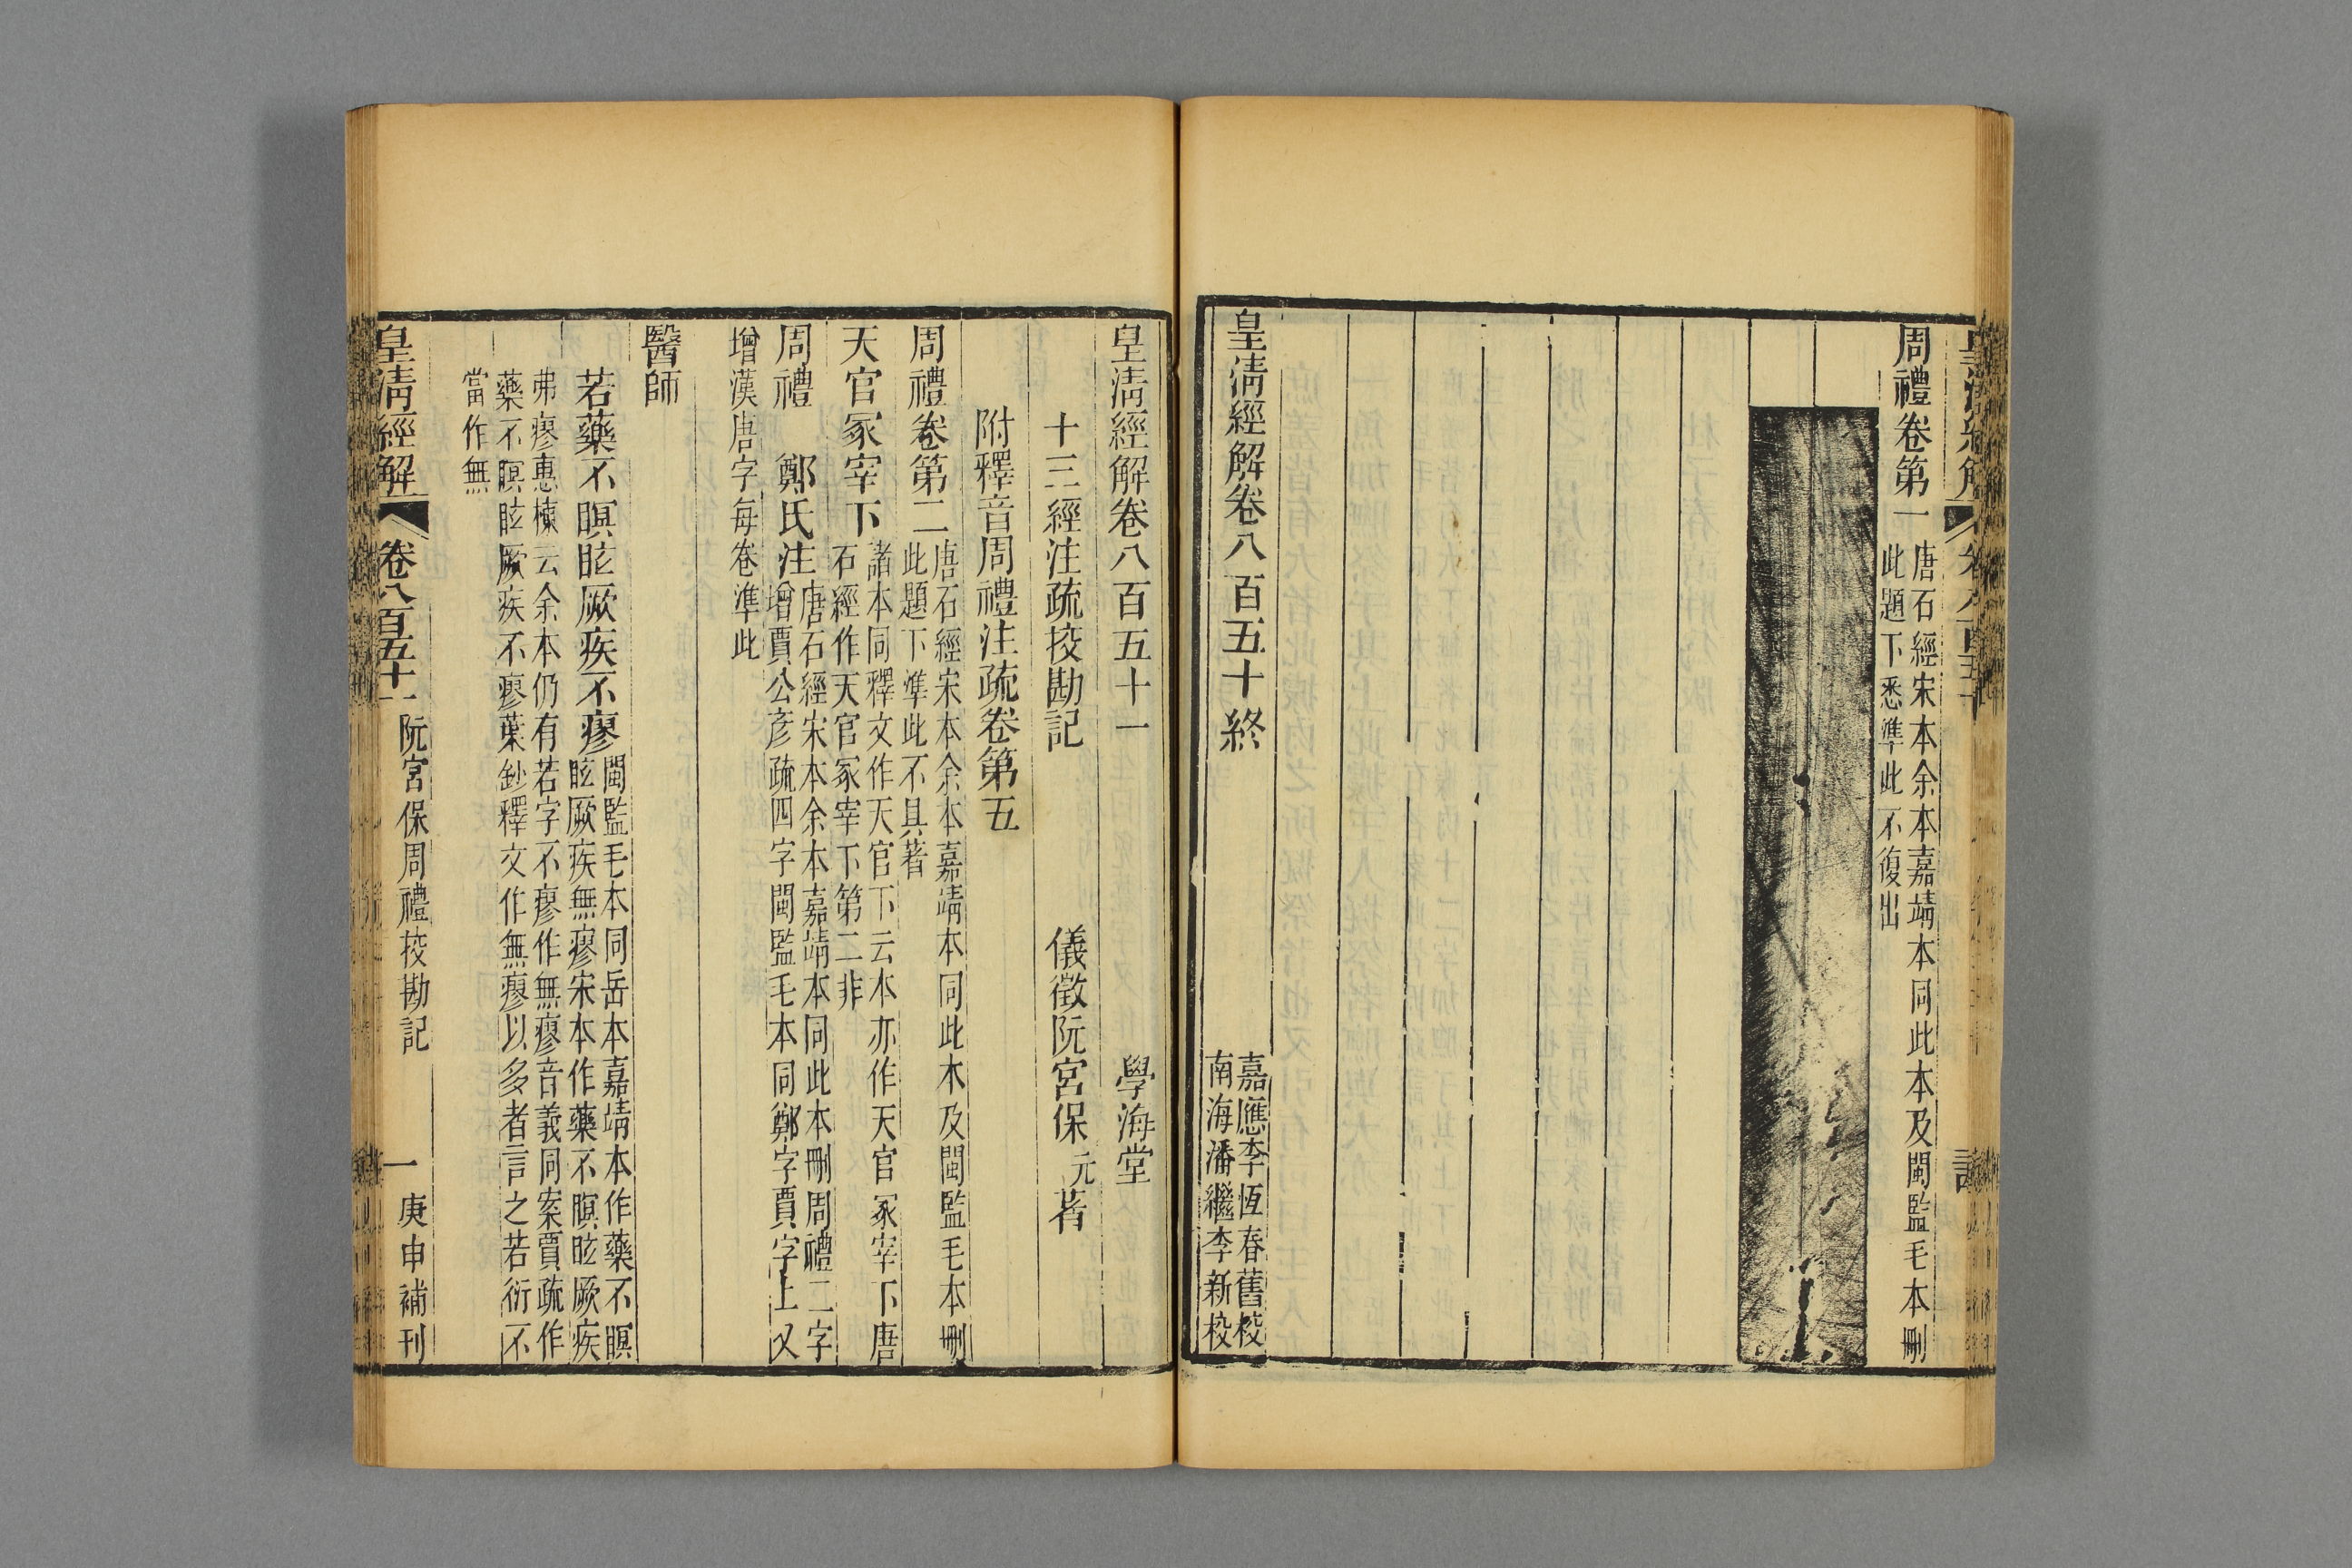 周禮卷第一
唐石經宋本余本嘉靖本同此本及閩監毛本刪
此題下悉準此不復出
皇清經解卷八百五十終
嘉應李恆春舊校
南海潘繼李新校
皇清經解卷八百五十一
學海堂
十三經注疏挍勘記
儀徵阮宮保元著
附釋音周禮注疏卷第五
周禮卷第二
唐石經宋本余本嘉靖本同此本及閩監毛本刪
此題下準此不具著
天官冢宰下
諸本同釋文作天官下云本亦作天官冢宰下唐
石經作天官冢宰下第二非
周禮
鄭氏注
唐石經宋本余本嘉靖本同此本刪周禮二字
增賈公彥疏四字閩監毛本同鄭字賈字上又
增漢唐字每卷準此
醫師
若藥不瞑眩厥疾不瘳
閩監毛本同岳本嘉靖本作藥不瞑
眩厥疾無瘳宋本作藥不瞑眩厥疾
弗瘳惠棟云余本仍有若字不瘳作無瘳音義同案賈疏作
藥不瞑眩厥疾不瘳葉鈔釋文作無瘳以多者言之若衍不
當作無
皇清經解
卷八百五十一
阮宮保周禮挍勘記
一
庚申補刊